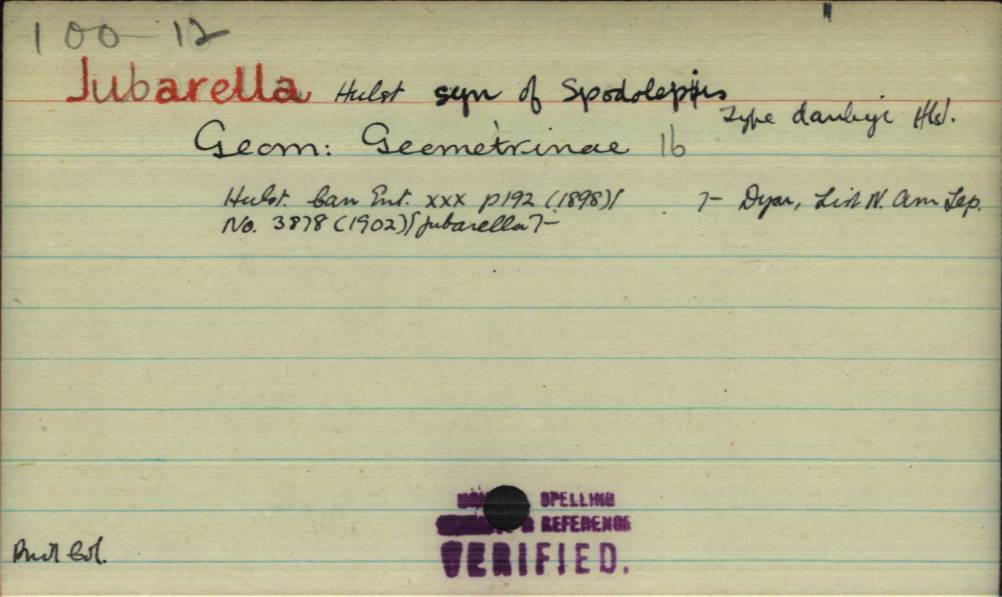 100-12
Jubarella Hulst syn of Spodolepsis
Type danbyi Hlst.
Geom: Geometrinae 16
Hulst. Can Ent. xxx p192 (1898)/ 7- Dyar, List N. Am Lep.
No. 3878 (1902)/jubarella7-
SPELLING
& REFERENCE
VERIFIED.
Brit Col.